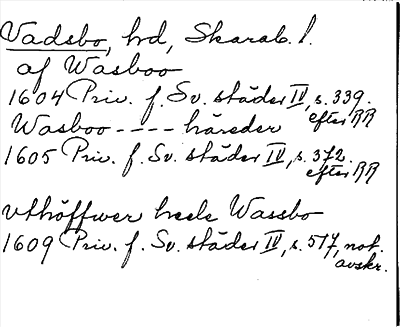 Vadsbo, hd, Skarab. l.
af Wasboo
1604 Priv. f. Sv. städer IV, s. 339.
efter RR
Wasboo ---- häreder
1605 Priv. f. Sv. städer IV, s. 372.
efter RR
vthöffwer heele Wassbo
1609 Priv. f. Sv. städer IV, s. 517, not.
avskr.